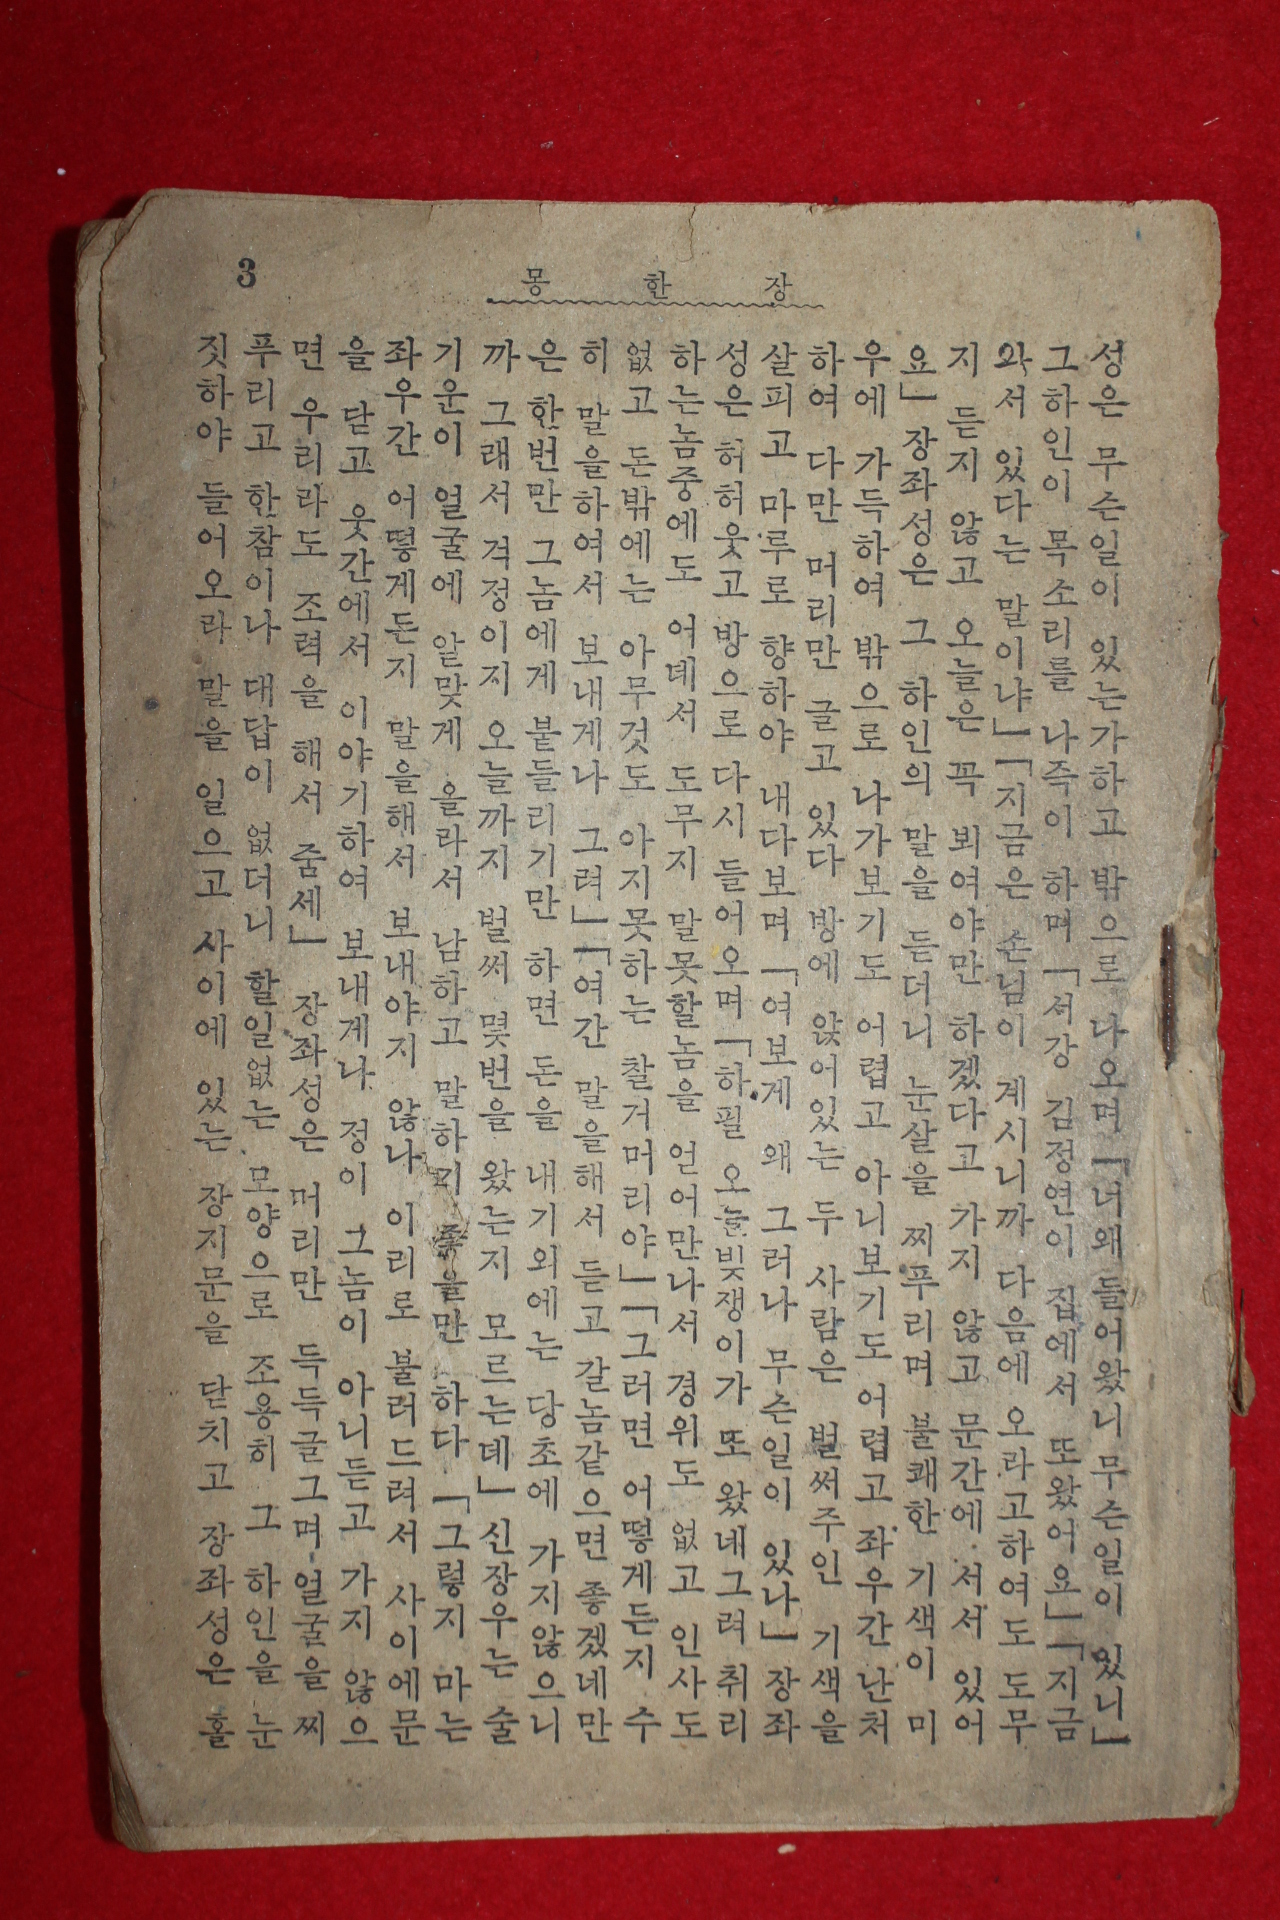 장한몽
3
성은 무슨일이 있는가하고 밖으로 나오며 「너왜들어왔니 무슨일이 있니」
그하인이 목소리를 나즉이 하며 「서강 김정연이 집에서 또왔어요」「지금
와서 있다는 말이냐」「지금은 손님이 계시니까 다음에 오라고하여도 도무
지 듣지 않고 오늘은 꼭 뵈여야만 하겠다고 가지 않고 문간에 서서 있어
요」장좌성은 그 하인의 말을 듣더니 눈살을 찌푸리며 불쾌한 기색이 미
우에 가득하여 밖으로 나가보기도 어렵고 아니보기도 어렵고 좌우간 난처
하여 다만 머리만 글고 있다 방에 앉어있는 두 사람은 벌써주인 기색을
살피고 마루로 향하야 내다보며 「여보게 왜 그러나 무슨일이 있나」장좌
성은 허허웃고 방으로 다시 들어오며 「하필 오늘빚쟁이가 또 왔네그려 취리
하는놈중에도 어데서 도무지 말못할놈을 얻어만나서 경위도 없고 인사도
없고 돈밖에는 아무것도 아지못하는 찰거머리야」「그러면 어떻게든지 수
히 말을하여서 보내게나 그려」「여간 말을해서 듣고 갈놈같으면 좋겠네만
은 한번만 그놈에게 붙들리기만 하면 돈을 내기외에는 당초에 가지않으니
까 그래서 걱정이지 오늘까지 벌써 몇번을 왔는지 모르는데」신장우는 술
기운이 얼굴에 알맞게 올라서 남하고 말하기 좋을만 하다 「그렇지 마는
좌우간 어떻게든지 말을해서 보내야지 않나 이리로 불러드려서 사이에문
을 닫고 웃간에서 이야기하여 보내게나 정이 그놈이 아니듣고 가지 않으
면 우리라도 조력을 해서 줌세」 장좌성은 머리만 득득글그며 얼굴을 찌
푸리고 한참이나 대답이 없더니 할일없는 모양으로 조용히 그 하인을 눈
짓하야 들어오라 말을 일으고 사이에 있는 장지문을 닫치고 장좌성은 홀